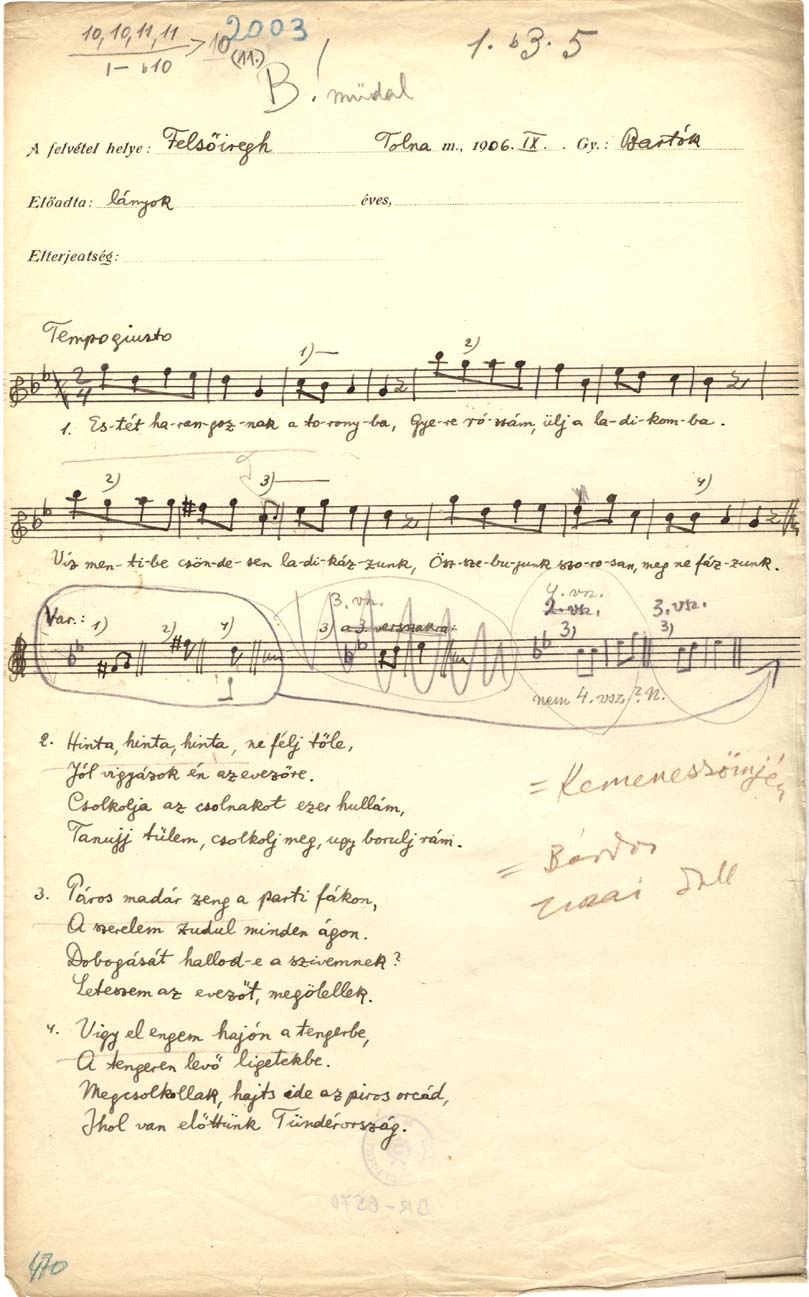 10, 10, 11, 11
1 – b10
10
(11.)
2003
1. b3. 5
B! műdal
A felvétel helye: Felsőiregh Tolna m., 1906. IX. Gy.: Bartók
Előadta: lányok éves,
Elterjedtség:
Tempo giusto
1)
2)
2
4
1. Es-tét ha-ran-goz-nak a to-rony-ba, Gye-re ró-zsám, ülj a la-di-kom-ba.
2)
3)
4)
Víz men-ti-be csön-de-sen la-di-káz-zunk, Ösz-sze-bu-junk szo-ro-san, meg ne fáz-zunk.
Var.: 1) 2) 4)
3. vsz.
3) a 3. versszakra:
4. vsz.
2. vsz.
3)
3. vsz.
3)
nem 4. vsz.
2. Hinta, hinta, hinta, ne félj tőle,
Jól vigyázok én az evezőre.
Csolkolja az csolnakot ezer hullám,
Tanujj tülem, csolkolj meg, ugy borulj rám.
3. Páros madár zeng a parti fákon,
A szerelem zudul minden ágon.
Dobogását hallod-e a szivemnek?
Leteszem az evezőt, megölellek.
4. Vigy el engem hajón a tengerbe,
A tengeren levő ligetekbe.
Megcsolkollak, hajts ide az piros orcád,
Ihol van előttünk Tündérország.
BR-6570
470